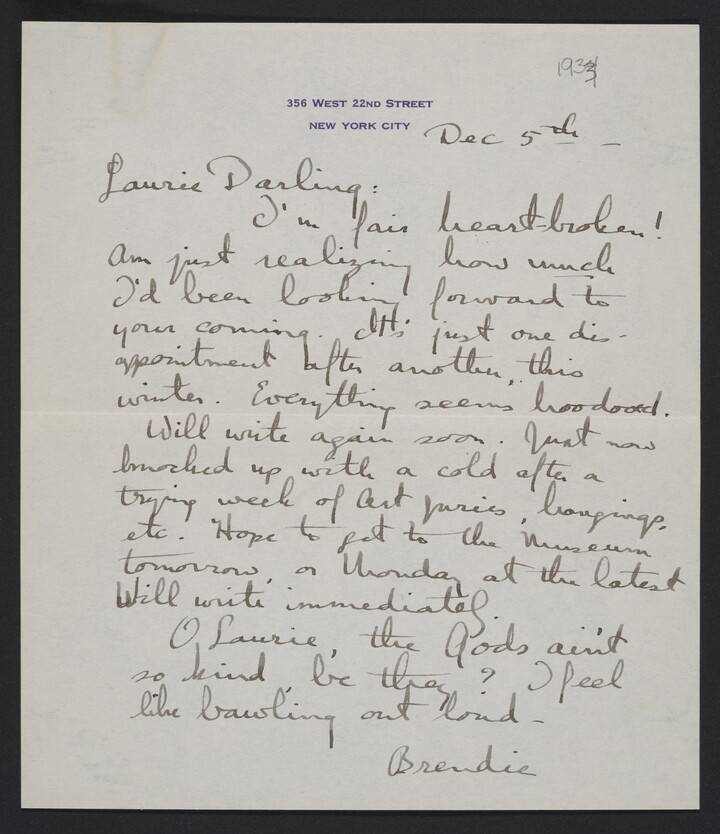 193
356 WEST 22ND STREET
NEW YORK CITY
Dec 5th –
Laurie Darling:
I'm fair heart-broken!
Am just realizing how much
I'd been looking forward to
your coming. It's just one dis-
appointment after another, this
winter. Everything seems hoodooed.
Will write again soon. Just now
knocked up with a cold after a
trying week of Art juries, hangings,
etc. Hope to get to the Museum
tomorrow, or Monday at the latest
Will write immediately.
O Laurie, the Gods ain't
so kind, be they? I feel
like bawling out loud –
Brendie